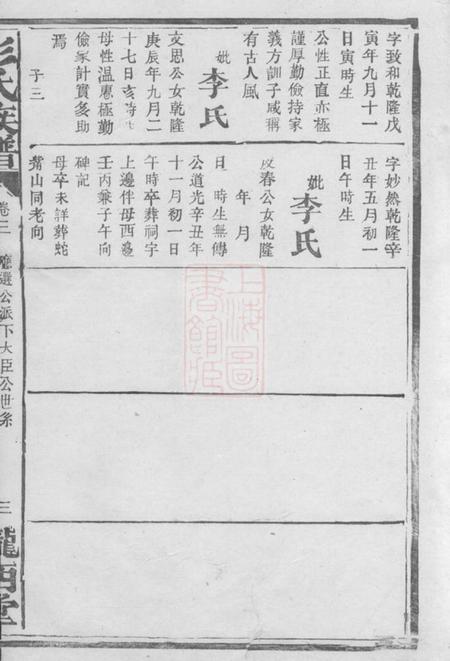 字致和乾隆戊
寅年九月十一
日寅時生
公性正直亦極
謹厚勤儉持家
義方訓子咸稱
有古人風
妣李氏
文思公女乾隆
庚辰年九月二
十七日亥時生
母性溫惠極勤
儉家計實多助
焉
子三
字妙然乾隆辛
丑年五月初一
日午時生
妣李氏
春公女乾隆
年月
日時生無傳
公道光辛丑年
十一月初一日
午時卒葬祠字
上邊伴母西邊
壬丙兼子午向
碑記
母卒未詳葬蛇
山同老向
彭氏族譜
卷三
應選公派下大臣公世系
三
隴西堂
上海圖書館藏